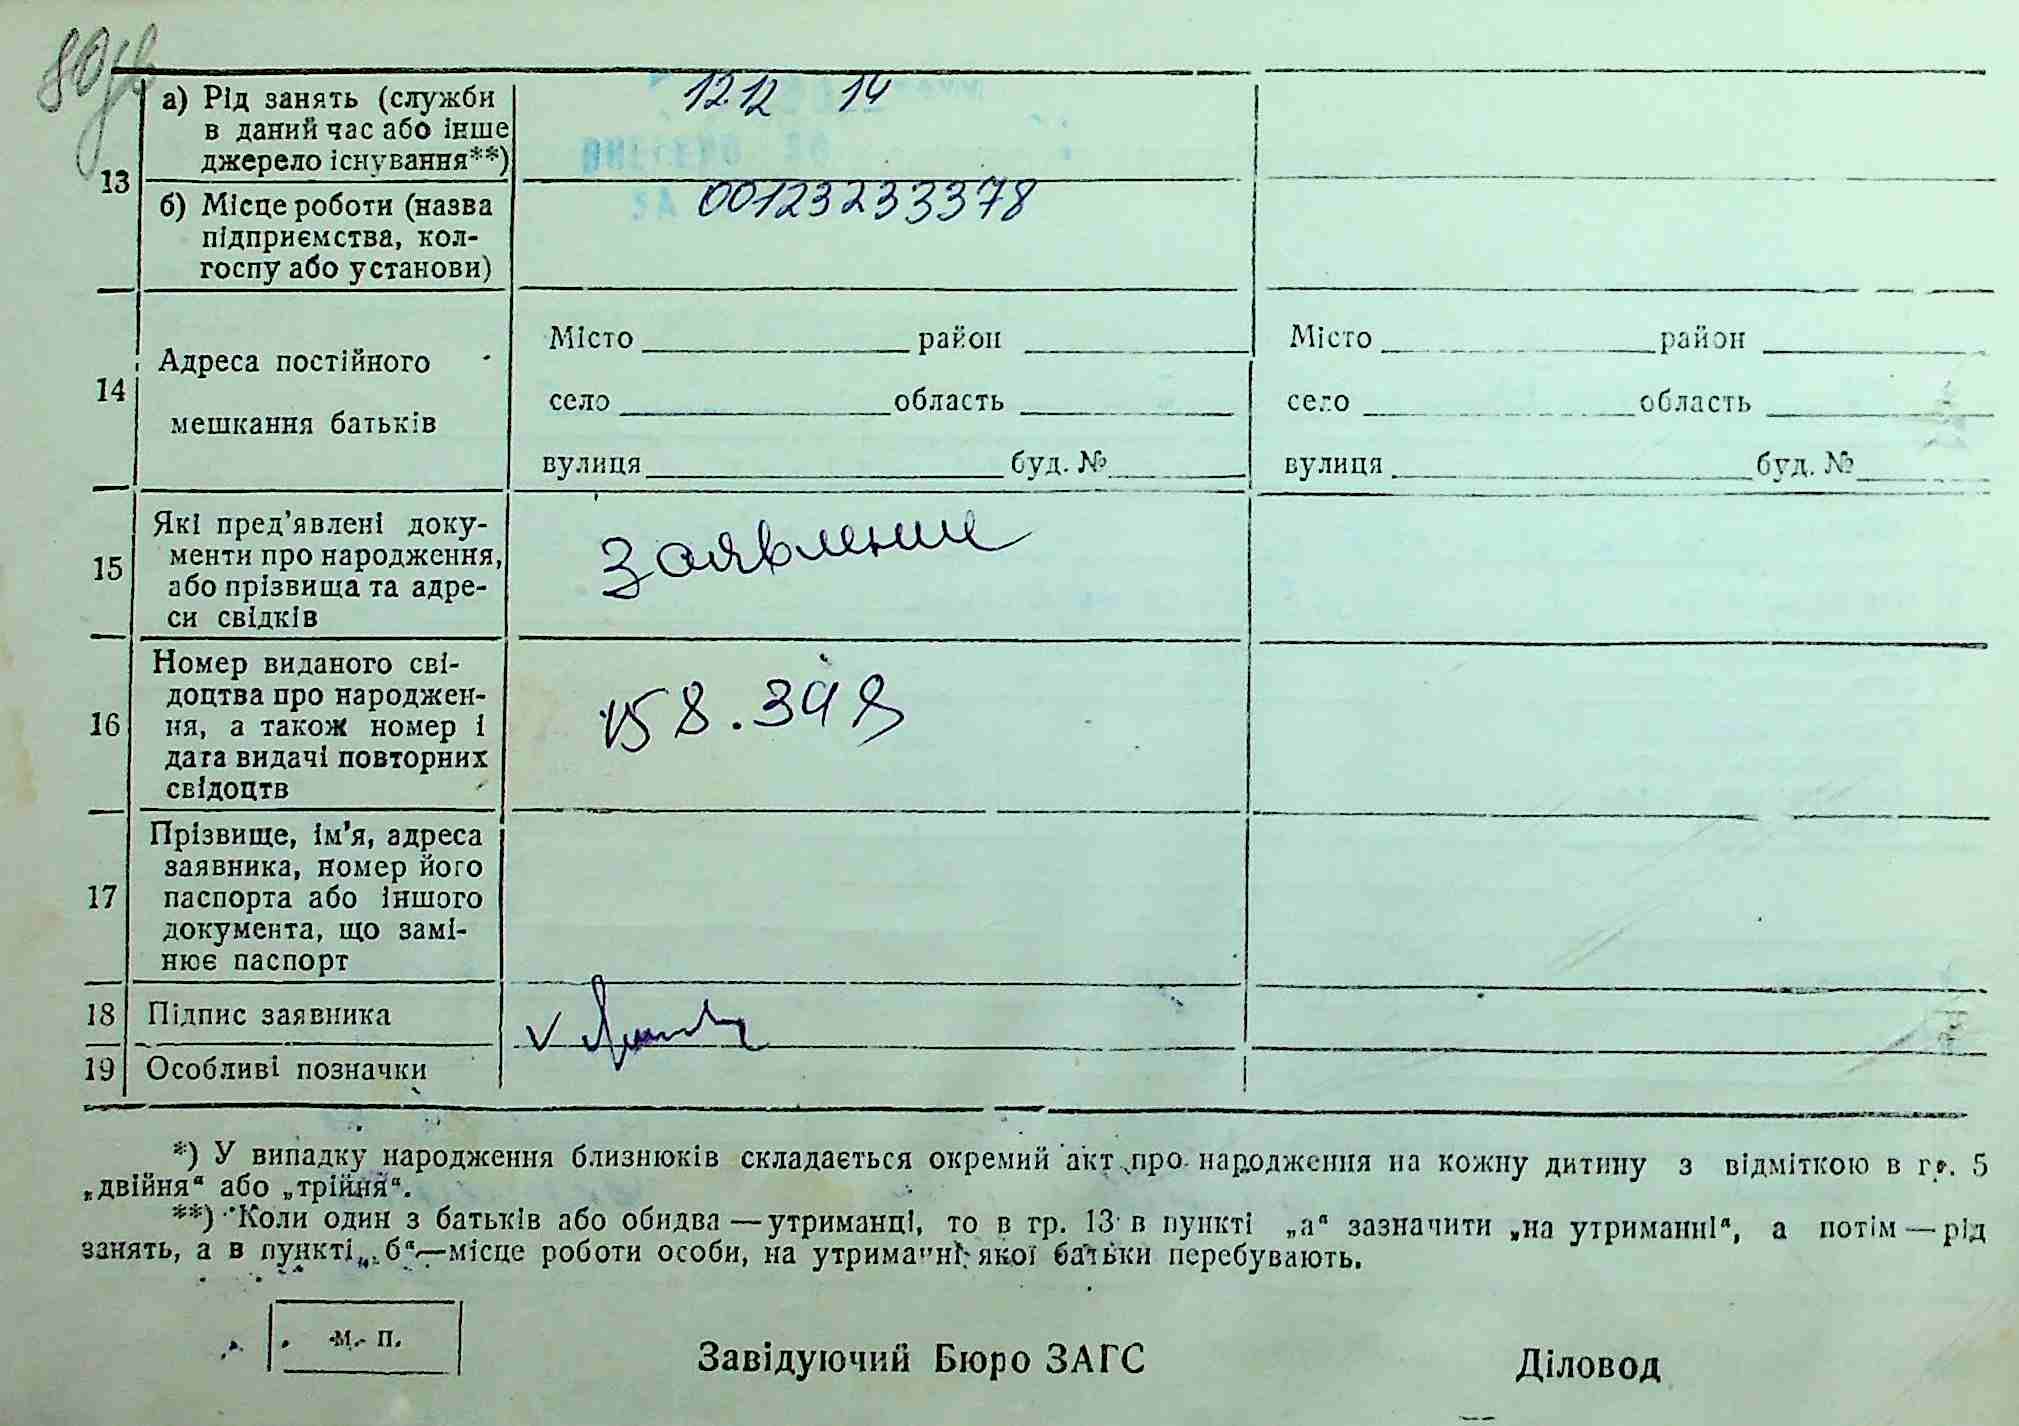 а) Рід занять (служби
в даний час або інше
джерело існування**)
12.12 14
ВНЕСЕНО
ЗА 00123233378
13
б) Місце роботи (назва
підприємства, кол-
госпу або установи)
14
Адреса постійного
мешкання батьків
Місто район
село область
вулиця буд. №
Місто район
село область
вулиця буд. №
15
Які пред'явлені доку-
менти про народження,
або прізвища та адре-
си свідків
заявление
16
Номер виданого сві-
доцтва про народжен-
ня, а також номер і
дата видачі повторних
свідоцтв
17
Прізвище, ім'я, адреса
заявника, номер його
паспорта або іншого
документа, що замі-
нює паспорт
18 Підпис заявника
V
19 Особливі позначки
*) У випадку народження близнюків складається окремий акт про народження на кожну дитину з відміткою в гр. 5
„двійня“ або „трійня“.
**) Коли один з батьків або обидва — утриманці, то в гр. 13 в пункті „а“ зазначити „на утриманні“, а потім — рід
занять, а в пункті „б“ — місце роботи особи, на утриманні якої батьки перебувають.
М. П.
Завідуючий Бюро ЗАГС
Діловод